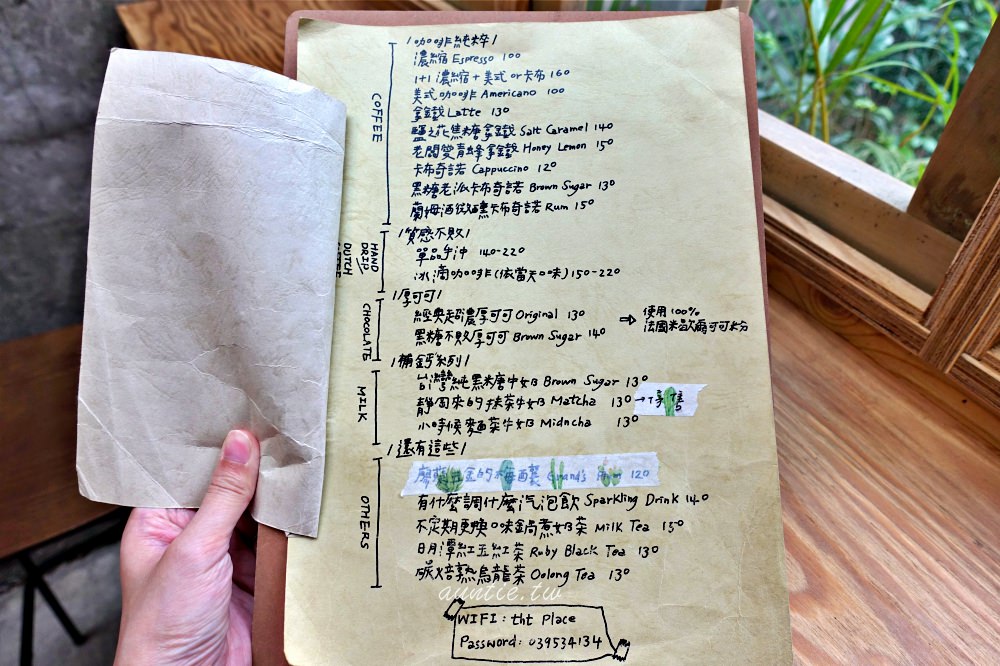 /咖啡純粹/
COFFEE
濃縮 Espresso 100
1+1 濃縮+美式 or 卡布 160
美式咖啡 Americano 100
拿鐵 Latte 130
鹽之花焦糖拿鐵 Salt Caramel 140
老闆娘青蜂拿鐵 Honey Lemon 150
卡布奇諾 Cappuccino 120
黑糖老派卡布奇諾 Brown Sugar 130
蘭姆酒微醺卡布奇諾 Rum 150
/質感不敗/
HAND DRIP
DUTCH
單品手沖 140-220
冰滴咖啡(依當天口味)150-220
/厚可可/
CHOCOLATE
經典超濃厚可可 Original 130
黑糖不敗厚可可 Brown Sugar 140
⇨ 使用100%
法國米歇爾可可粉
/補鈣系列/
MILK
台灣純黑糖牛奶 Brown Sugar 130
靜岡來的抹茶牛奶 Matcha 130 →停售
小時候麵茶牛奶 Midncha 130
/還有這些/
OTHERS
的梅酒 Grand's 120
有什麼調什麼汽泡飲 Sparkling Drink 140
不定期更換口味鍋煮奶茶 Milk Tea 150
日月潭紅玉紅茶 Ruby Black Tea 130
碳焙熟烏龍茶 Oolong Tea 130
auntie.tw
WIFI: tht Place
Password: 039534134